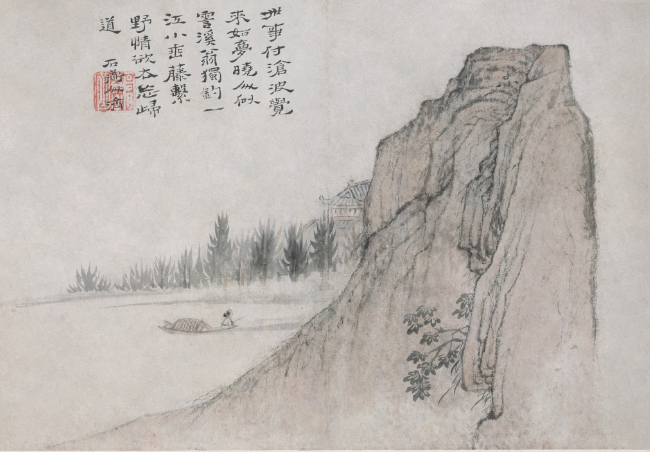 世事付滄波覺
來如夢曉似
溪翁獨釣一
江小垂藤繫
野情欲去忘歸
道
石濤濟